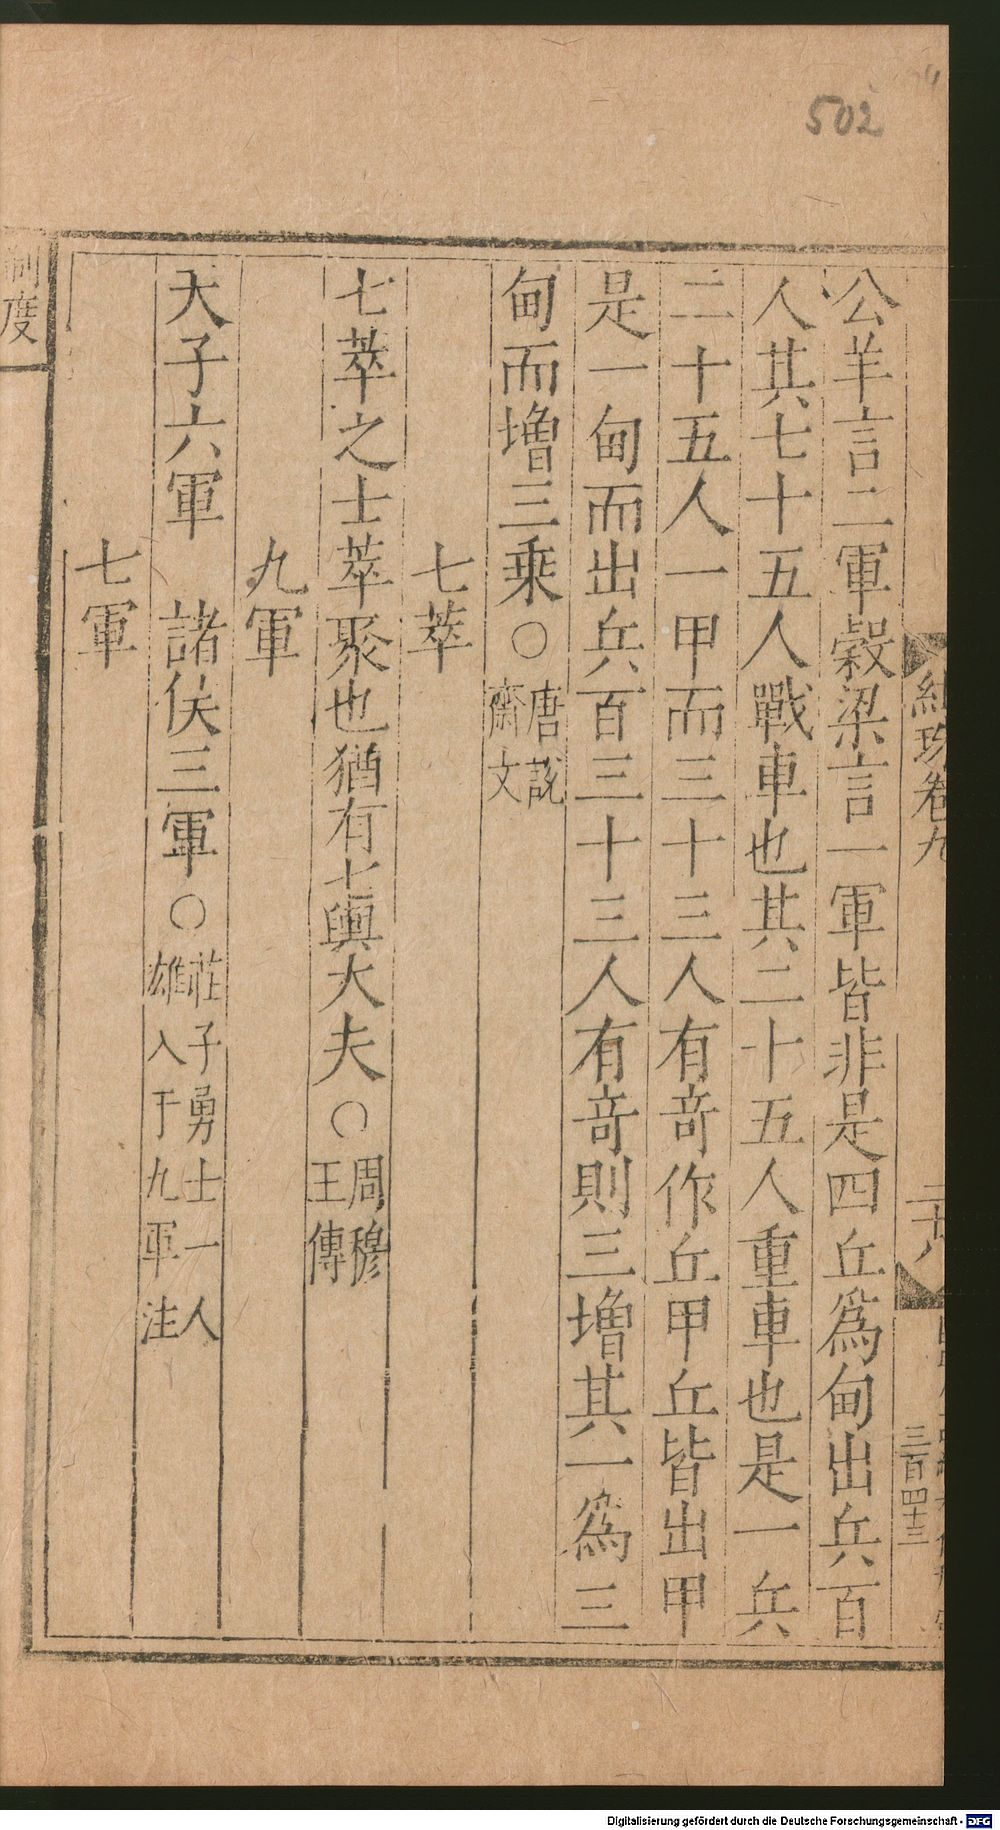 502
紺珠卷九
二十八
三百四十三
公羊言二軍穀梁言一軍皆非是四丘爲甸出兵百
人其七十五人戰車也其二十五人重車也是一兵
二十五人一甲而三十三人有竒作丘甲丘皆出甲
是一甸而出兵百三十三人有竒則三增其一爲三
甸而增三乘○唐說
齋文
七萃
七萃之士萃聚也猶有七輿大夫○周穆
王傳
九軍
天子六軍 諸侯三軍○莊子勇士一人
雄入于九軍注
七軍
制度
Digitalisierung gefördert durch die Deutsche Forschungsgemeinschaft - DFG